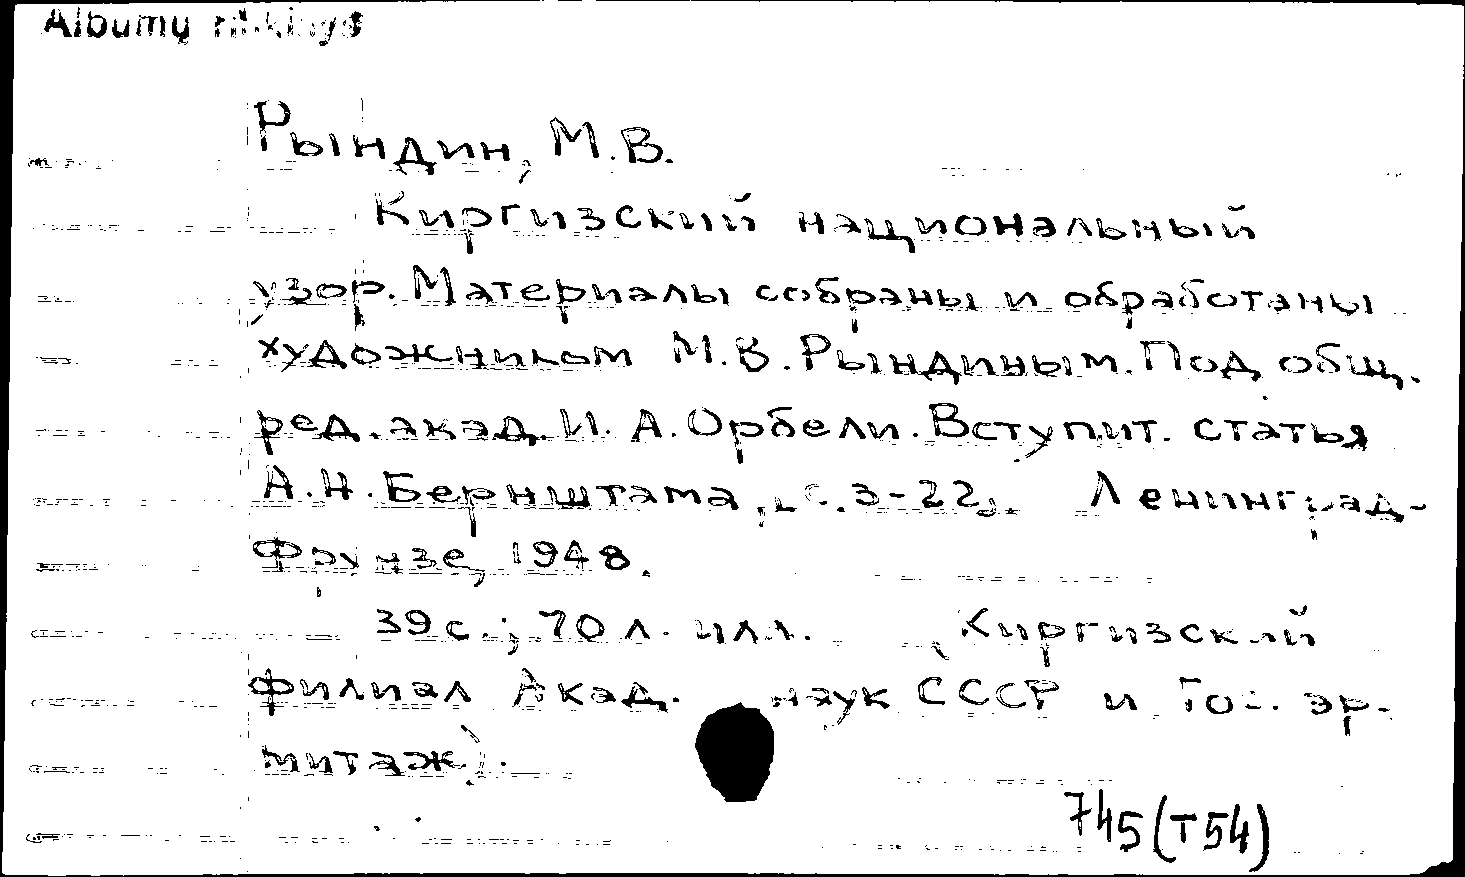 Albumų rinkinys
Рындин, М.В.
Киргизский национальный
узор. Материалы собраны и обработаны
художником М.В. Рындиным. Под общ.
ред. акад. И. А. Орбели. Вступит. статья
А.Н. Бернштама, с. 3-22. Ленинград-
Фрунзе, 1948.
39 с.; 70 л. илл. (Киргизский
филиал Акад. наук СССР и Гос. эр-
митаж).
745(Т54)